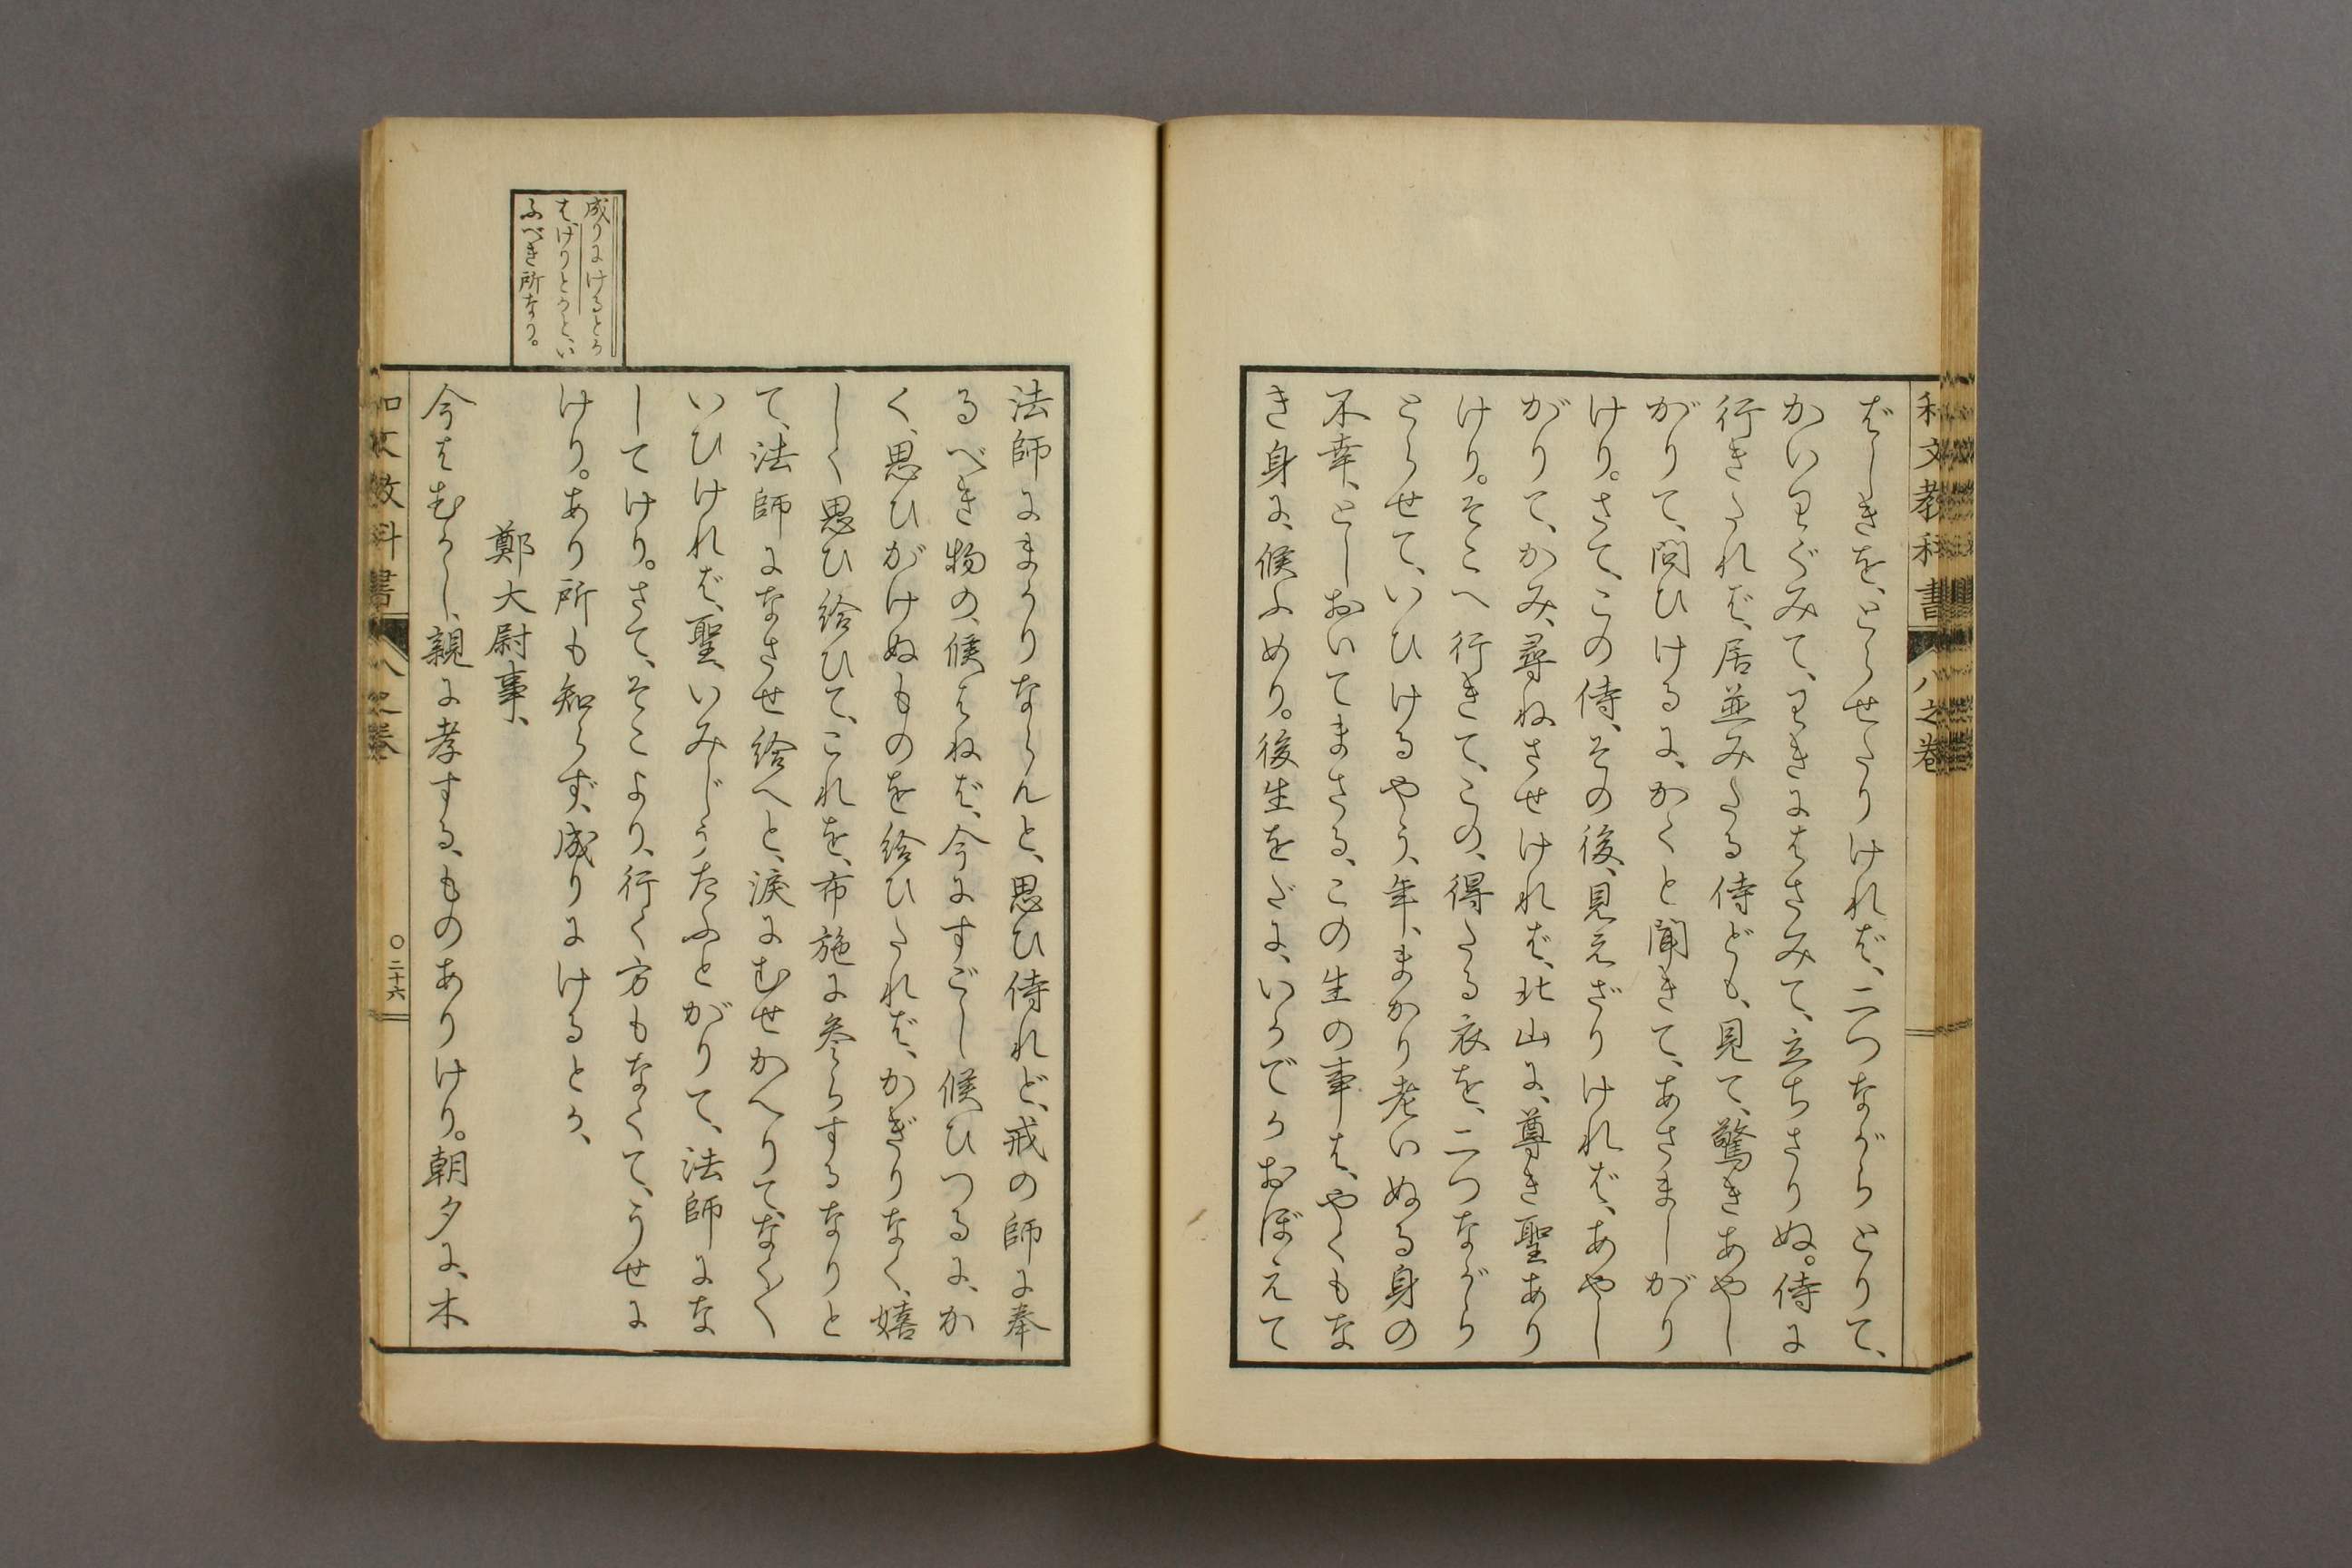 和文教科書 八之巻
ばしきを、とらせたりければ、二つながらとりて、
かいわぐみて、わきにはさみて、立ちさりぬ。侍に
行きたれば、居並みたる侍ども、見て、驚きあやし
がりて、問ひけるに、かくと聞きて、あさましがり
けり。さて、この侍、その後、見えざりければ、あやし
がりて、かみ、尋ねさせければ、北山に、尊き聖あり
けり。そこへ行きて、この、得たる衣を、二つながら
とらせて、いひけるやう、年、まかり老いぬる身の
不幸、としおいてまさる、この生の事は、やくもな
き身に、候ふめり。後生をだに、いかでかおぼえて
法師にまかりならんと、思ひ侍れど、戒の師に奉
るべき物の、候はねば、今にすごし候ひつるに、か
く、思ひがけぬものを給ひたれば、かぎりなく、嬉
しく思ひ給ひて、これを、布施に参らするなりと
て、法師になさせ給へと、涙にむせかへりて、なく〳〵
いひければ、聖、いみじうたふとがりて、法師にな
してけり。さて、そこより、行く方もなくて、うせに
けり。あり所も知らず、成りにけるとか、
成りにけるとか
は、けりとかと、い
ふべき所なり。
鄭大尉事、
今はむかし、親に孝する、ものありけり。朝夕に、木
和文教科書 八之巻 〇二十六